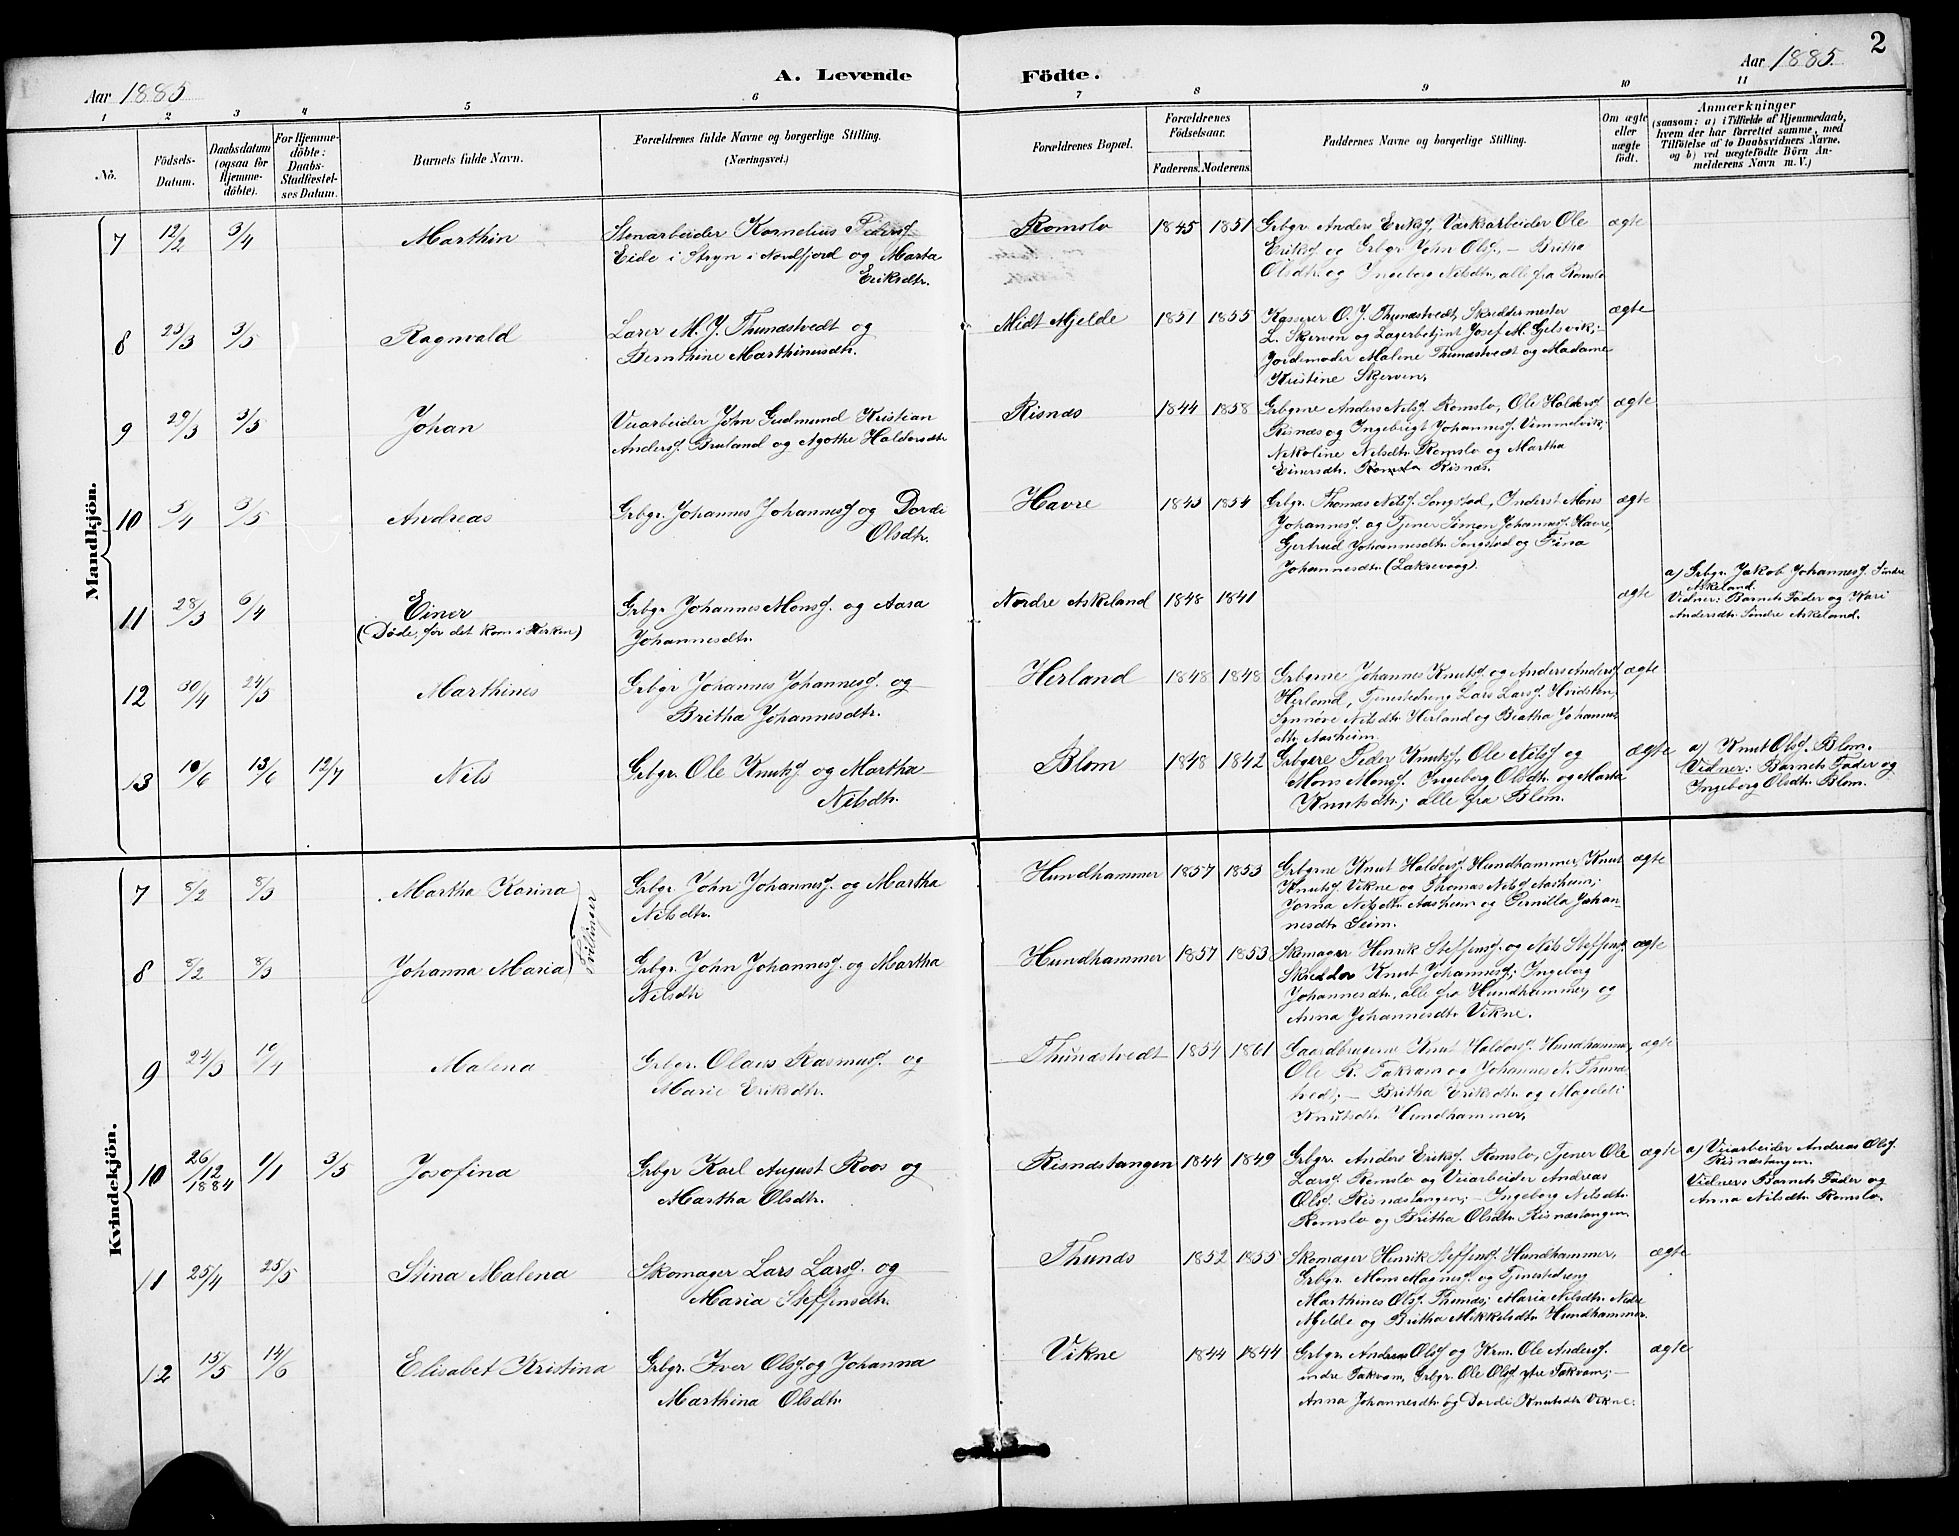 2
Aar 1885
A. Levende Födte.
Aar 1885.
1 2 3 4 5 6 7 8 9 10 11
No.
Födsels-
Datum.
Daabsdatum
(ogsaa for
Hjemme-
döbte).
For Hjemme-
döbte:
Daabs-
Stadfæstel-
ses Datum.
Barnets fulde Navn.
Forældrenes fulde Navne og borgerlige Stilling.
(Næringsvei.)
Forældrenes Bopæl.
Forældrenes
Födselsaar.
Faderens. Moderens.
Faddernes Navne og borgerlige Stilling.
Om ægte
eller
uægte
födt.
Anmærkninger
(saasom: a) i Tilfælde af Hjemmedaab,
hvem der har forrettet samme, med
Tilföielse af to Daabsvidners Navne,
og b) ved uægtefödte Börn An-
melderens Navn m. V.)
Mandkjön.
7 12/2 3/4 Marthin
Stenarbeider Kornelius Peders.
Eide i Stryn i Nordfjord og Marta
Eriksdtr.
Romslo 1845 1851
Grbgr Anders Eriks., Værksarbeider Ole
Eriks. og Grbgr John Ols., – Britha
Olsdtr. og Ingeborg Nilsdtr., alle fra Romslo
ægte
8 23/3 3/5 Ragnvald
Lærer M. J. Thunæstvedt og
Bernthine Marthinusdtr.
Midt Mjelde 1851 1855
Kasserer O. J. Thunæstvedt, Skreddermester
L. Skjerven og Lagerbetjent Josef M. Gjelsvik;
Jordemoder Malene Thunæstvedt og Madame
Kristine Skjerven.
ægte
9 29/3 3/5 Johan
Veiarbeider John Gudmund Kristian
Anders. Bruland og Agothe Haldorsdtr
Risnæs 1844 1858
Grbgrne Anders Nils. Romslo, Ole Haldors.
Risnæs og Ingebrigt Johannes. Vimmelvik;
Nikoline Nilsdtr. Romslo og Martha
Einersdtr. Romslo Risnæs.
ægte
10 5/4 3/5 Andreas
Grbgr. Johannes Johannes. og Dorde
Olsdtr.
Havre 1843 1854
Grbgr. Thomas Nils. Songstad, Inderst Mons
Johannes. og Tjener Simon Johannes. Havre,
Gjertrud Johannesdtr. Songstad og Fina
Johannesdtr. (Laksevaag).
ægte
11 28/3 6/4 Einer
(Döde, för det kom i Kirken)
Grbgr Johannes Mons. og Aasa
Johannesdtr.
Nordre Askeland 1848 1841
ægte
a) Grbgr. Jakob Johannes. Söndre
Askeland.
Vidner: Barnets Fader og Kari
Andersdtr. Söndre Askeland.
12 30/4 24/5 Marthines
Grbgr Johannes Johannes. og
Britha Johannesdtr.
Herland 1848 1848
Grbgrne Johannes Knuts. og Anders Anders.
Herland, Tjenestedreng Lars Lars. Hvidsten,
Synnöve Nilsdtr Herland og Beatha Johannes
dtr. Aasheim.
ægte
13 10/6 13/6 12/7 Nils
Grbgr. Ole Knuts. og Martha
Nilsdtr.
Blom 1848 1842
Grbgere Peder Knuts., Ole Nils. og
Mons Mons. Ingeborg Olsdtr. og Marta
Knutsdtr.; alle fra Blom.
ægte
a) Knut Ols. Blom.
Vidner: Barnets Fader og
Ingeborg Olsdtr. Blom.
Kvindekjön.
7 8/2 8/3 Martha Karina
Tvillinger
Grbgr John Johannes. og Martha
Nilsdtr.
Hundhammer 1857 1853
Grbgrne Knut Haldors. Hundhammer, Knut
Knuts. Vikne og Thomas Nils. Aasheim;
Jorna Nilsdtr. Aasheim og Pernilla Johan-
nesdtr Seim.
ægte
8 8/2 8/3 Johanna Maria
Grbgr. John Johannes. og Martha
Nilsdtr
Hundhammer 1857 1853
Skomager Henrik Steffens. og Nils Steffens.
Skredder Knut Johannes.; Ingeborg
Johannesdtr., alle fra Hundhammer, og
Anna Johannesdtr Vikne.
ægte
9 24/3 10/4 Malena
Grbgr. Olais Rasmus. og
Marie Eriksdtr.
Thunæstvedt 1854 1861
Gaardbrugerne Knut Haldors. Hundhammer,
Ole R. Takvam og Johannes N. Thunæs
tvedt; – Britha Eriksdtr. og Magdeli
Knutsdtr. Hundhammer.
ægte
10 26/12 1884 1/1 3/5 Josefina
Grbgr Karl August Roos og
Martha Olsdtr.
Risnæstangen 1844 1849
Grbgr. Anders Eriks. Romslo, Tjener Ole
Lars. Romslo og Veiarbeider Andreas
Ols. Risnæstangen; – Ingeborg Nilsdtr.
Romslo og Britha Olsdtr. Risnæstangen.
ægte
a) Veiarbeider Andreas Ols.
Risnæstangen.
Vidner: Barnets Fader og
Anna Nilsdtr. Romslo.
11 25/4 25/5 Stina Malena
Skomager Lars Lars. og
Maria Steffensdtr.
Thunæs 1852 1855
Skomager Henrik Steffens. Hundhammer,
Grbgr. Mons Magnes. og Tjenestedreng
Marthines Ols. Thunæs; Maria Nilsdtr. Nedre
Mjelde og Britha Mikkelsdtr. Hundhammer.
ægte
12 15/5 14/6 Elisabet Kristina
Grbgr. Iver Ols. og Johanna
Marthina Olsdtr.
Vikne 1844 1844
Grbgr. Andreas Ols. og Krm. Ole Anders.
indre Takvam, Grbgr. Ole Ols. ytre Takvam; –
Anna Johannesdtr og Dorde Knutsdtr Vikne.
ægte